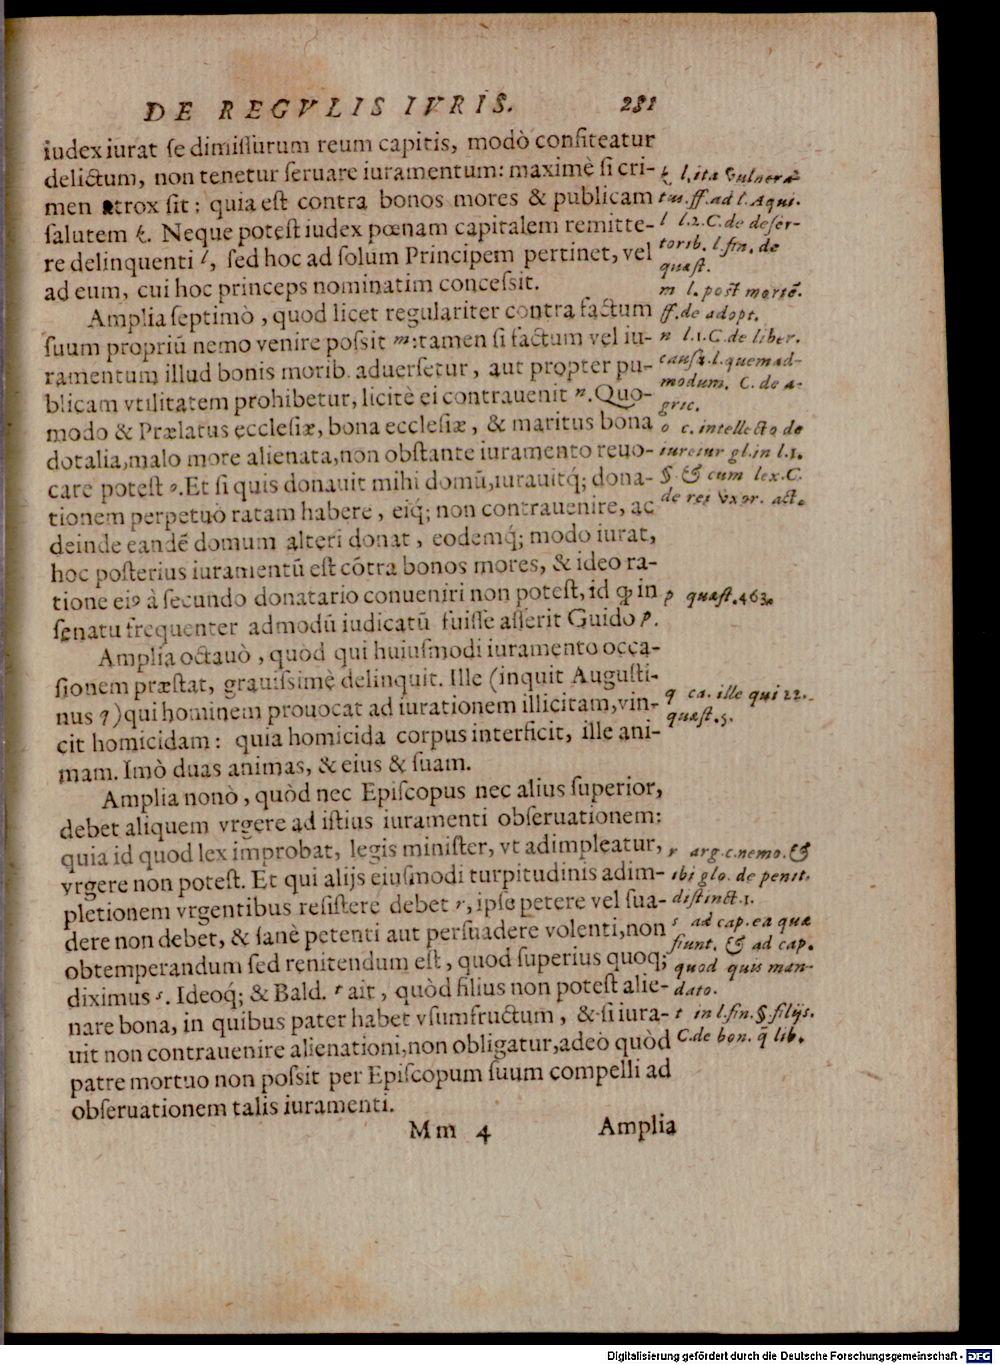 DE REGVLIS IVRIS. 281
iudex iurat se dimissurum reum capitis, modò confiteatur
delictum, non tenetur seruare iuramentum: maximè si cri-
men atrox sit: quia est contra bonos mores & publicam
salutem k. Neque potest iudex pœnam capitalem remitte-
re delinquenti l, sed hoc ad solum Principem pertinet, vel
ad eum, cui hoc princeps nominatim concessit.
Amplia septimò, quod licet regulariter contra factum
suum propriū nemo venire possit m: tamen si factum vel iu-
ramentum illud bonis morib. aduersetur, aut propter pu-
blicam vtilitatem prohibetur, licitè ei contrauenit n. Quo-
modo & Prælatus ecclesiæ, bona ecclesiæ, & maritus bona
dotalia, malo more alienata, non obstante iuramento reuo-
care potest o. Et si quis donauit mihi domū, iurauitq́; dona-
tionem perpetuò ratam habere, eiq́; non contrauenire, ac
deinde eandē domum alteri donat, eodemq́; modo iurat,
hoc posterius iuramentū est cōtra bonos mores, & ideo ra-
tione eiꝰ à secundo donatario conueniri non potest, id ꝙ in
senatu frequenter admodū iudicatū fuisse asserit Guido p.
Amplia octauò, quòd qui huiusmodi iuramento occa-
sionem præstat, grauissimè delinquit. Ille (inquit Augusti-
nus q) qui hominem prouocat ad iurationem illicitam, vin-
cit homicidam: quia homicida corpus interficit, ille ani-
mam. Imò duas animas, & eius & suam.
Amplia nonò, quòd nec Episcopus nec alius superior,
debet aliquem vrgere ad istius iuramenti obseruationem:
quia id quod lex improbat, legis minister, vt adimpleatur,
vrgere non potest. Et qui alijs eiusmodi turpitudinis adim-
pletionem vrgentibus resistere debet r, ipse petere vel sua-
dere non debet, & sanè petenti aut persuadere volenti, non
obtemperandum sed renitendum est, quod superius quoq;
diximus s. Ideoq́; & Bald. t ait, quòd filius non potest alie-
nare bona, in quibus pater habet vsumfructum, & si iura-
uit non contrauenire alienationi, non obligatur, adeò quòd
patre mortuo non possit per Episcopum suum compelli ad
obseruationem talis iuramenti.
Mm 4 Amplia
k l. ita vulnera
tus. ff. ad l. Aqui.
l l. 2. C. de deser-
torib. l. fin. de
quæst.
m l. post mortē.
ff. de adopt.
n l. 1. C. de liber.
causa. l. quemad-
modum. C. de a-
gric.
o c. intellecto de
iureiur gl. in l. 1.
§. & cum lex. C.
de rei vxor. act.
p quæst. 463.
q ca. ille qui 22.
quæst. 5.
r arg. c. nemo. &
ibi glo. de penit.
distinct. 1.
s ad cap. ea quæ
fiunt. & ad cap.
quod quis man-
dato.
t in l. fin. §. filijs.
C. de bon. q̄ lib.
Digitalisierung gefördert durch die Deutsche Forschungsgemeinschaft - DFG